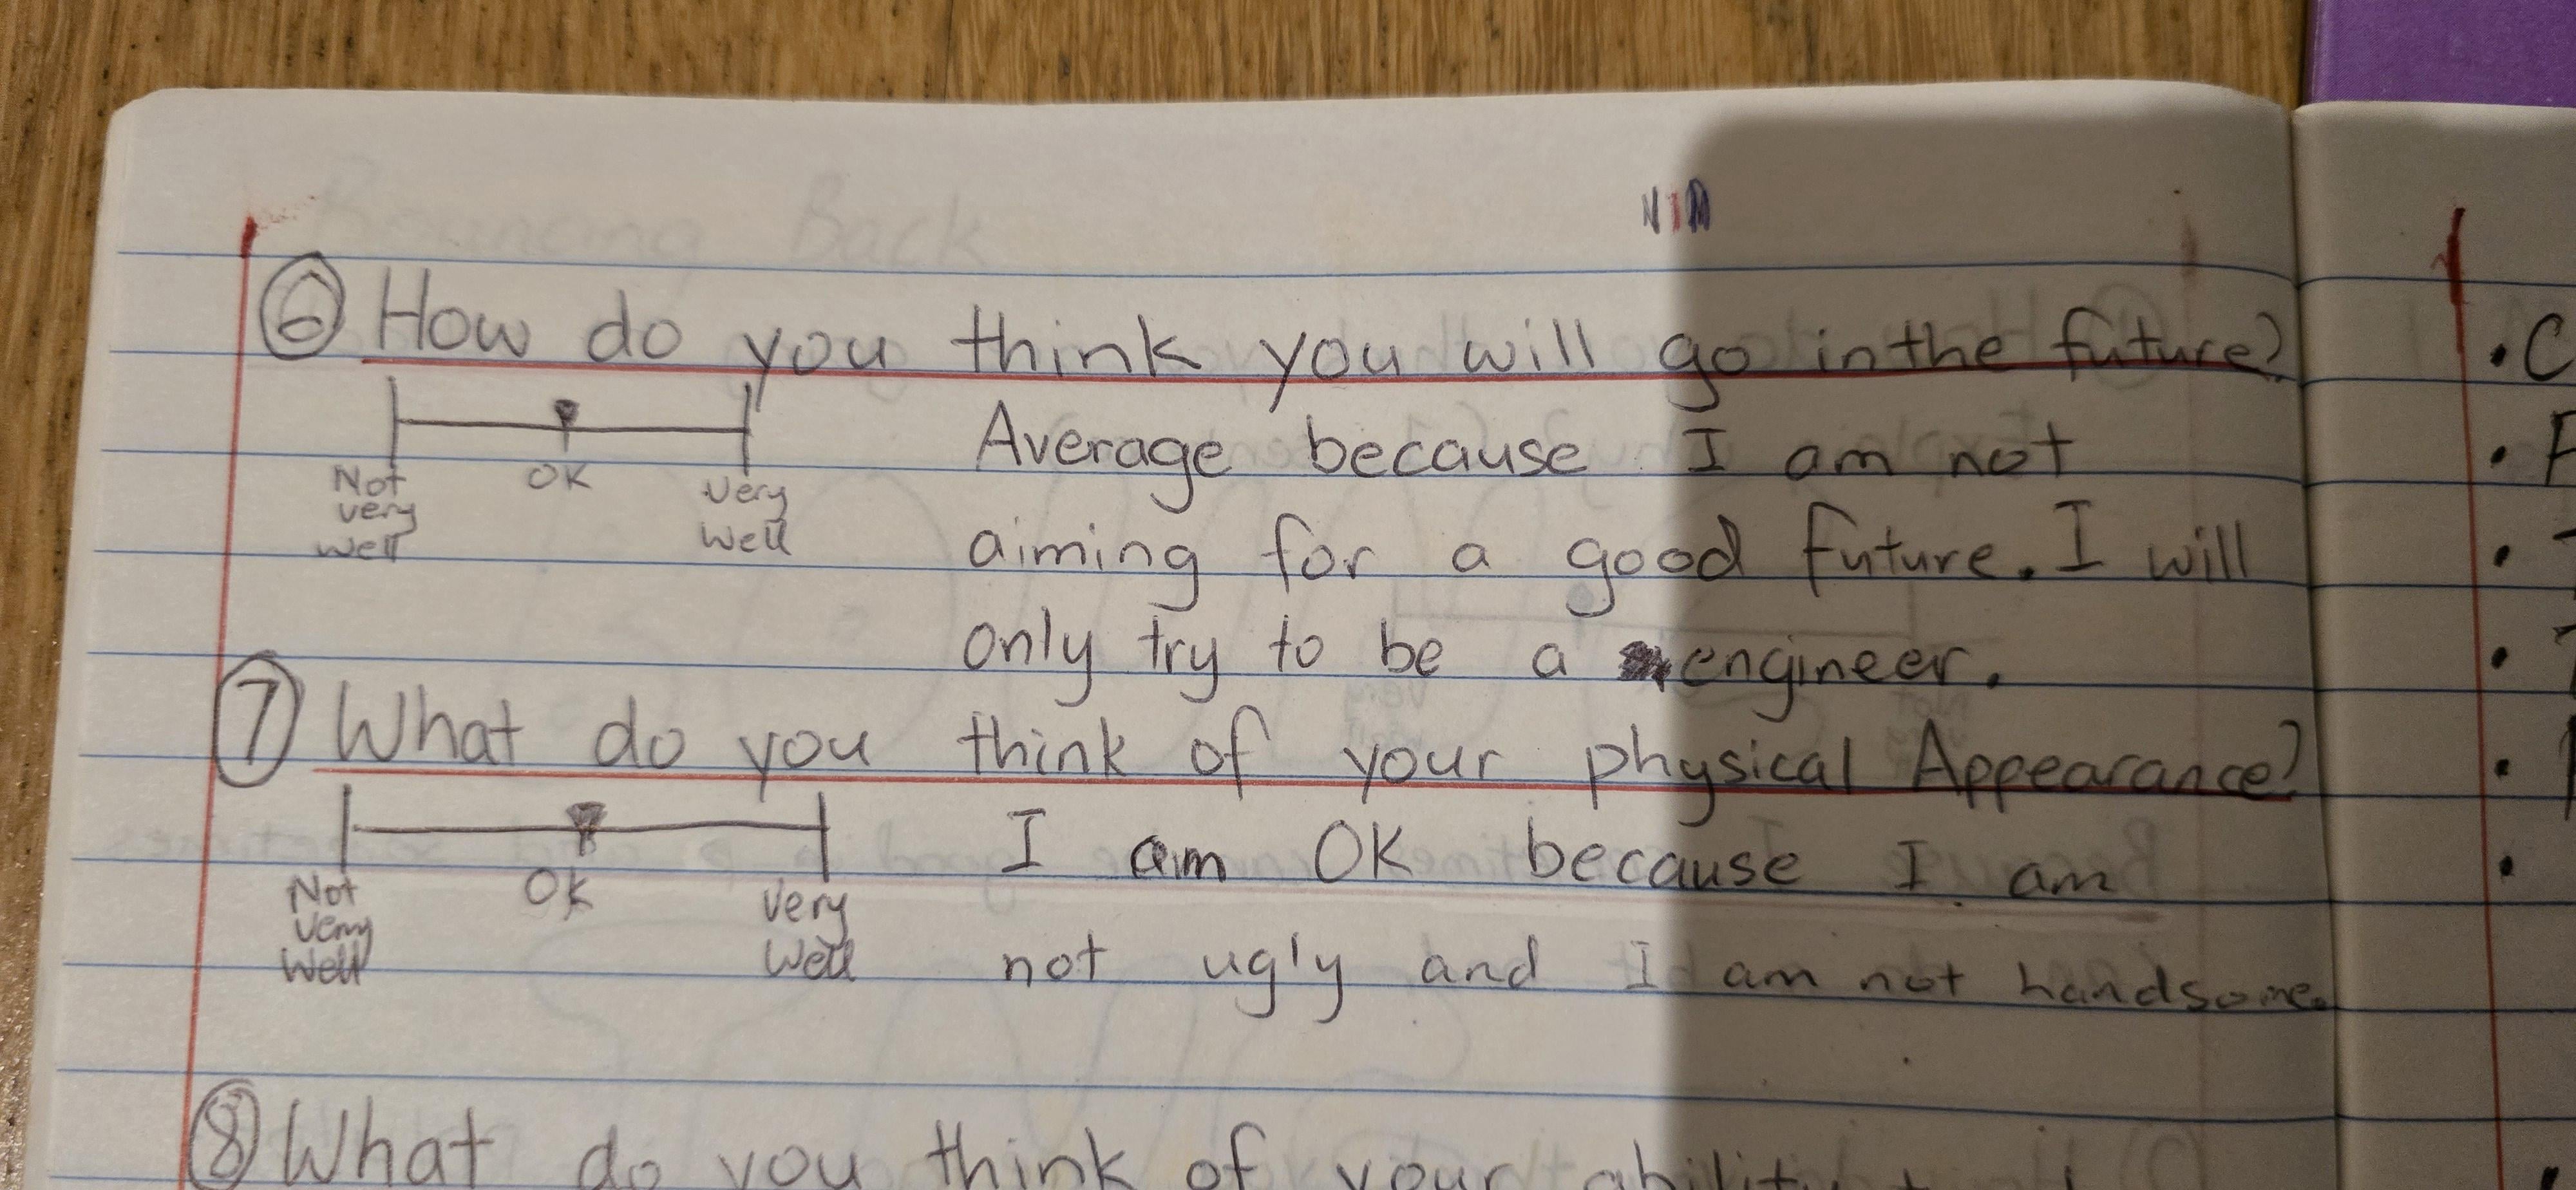 ⑥ How do you think you will go in the future?
Not very well OK Very Well
Average because I am not
aiming for a good future. I will
only try to be a engineer.
⑦ What do you think of your physical Appearance?
Not very Well OK Very Well
I am OK because I am
not ugly and I am not handsome.
⑧ What do you think of your ability